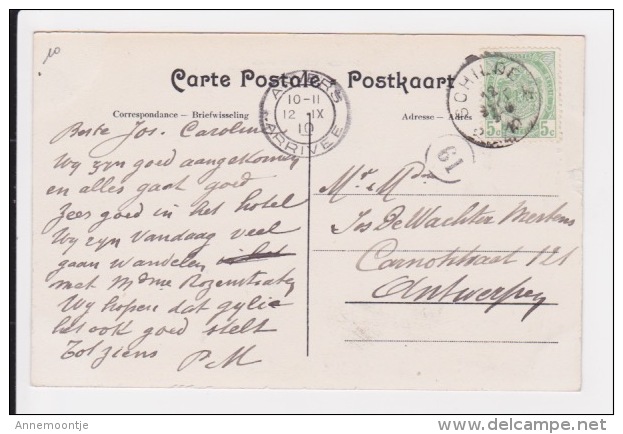 10
Carte Postale Postkaart
Correspondance – Briefwisseling
Adresse – Adrés
ANVERS
10-11
12 IX
10
ARRIVÉE
SCHILDE
5c 5c
61
Beste Jos. Caroline
Wy zyn goed aangekomen
en alles gaat goed
Zeer goed in het hotel
Wy zyn vandaag veel
gaan wandelen
met Mdme Rozenstraten
Wy hopen dat gylie
het ook goed stelt
Tot ziens P.M
Mr & Me
Jos De Wachter Mertens
Carnotstraat 121
Antwerpen
Annemoontje
delcampe.net